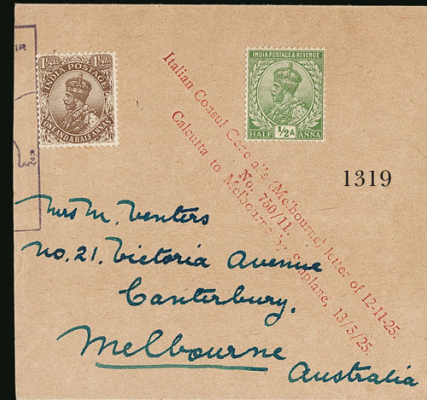 INDIA POSTAGE
ONE AND A HALF ANNAS
INDIA POSTAGE & REVENUE
HALF 1/2A ANNA
Italian Consul General's (Melbourne) letter of 12-11-25.
No. 760/11.
Calcutta to Melbourne by Seaplane, 13/5/25.
1319
Mrs M. Venters
No. 21. Victoria Avenue
Canterbury.
Melbourne
Australia